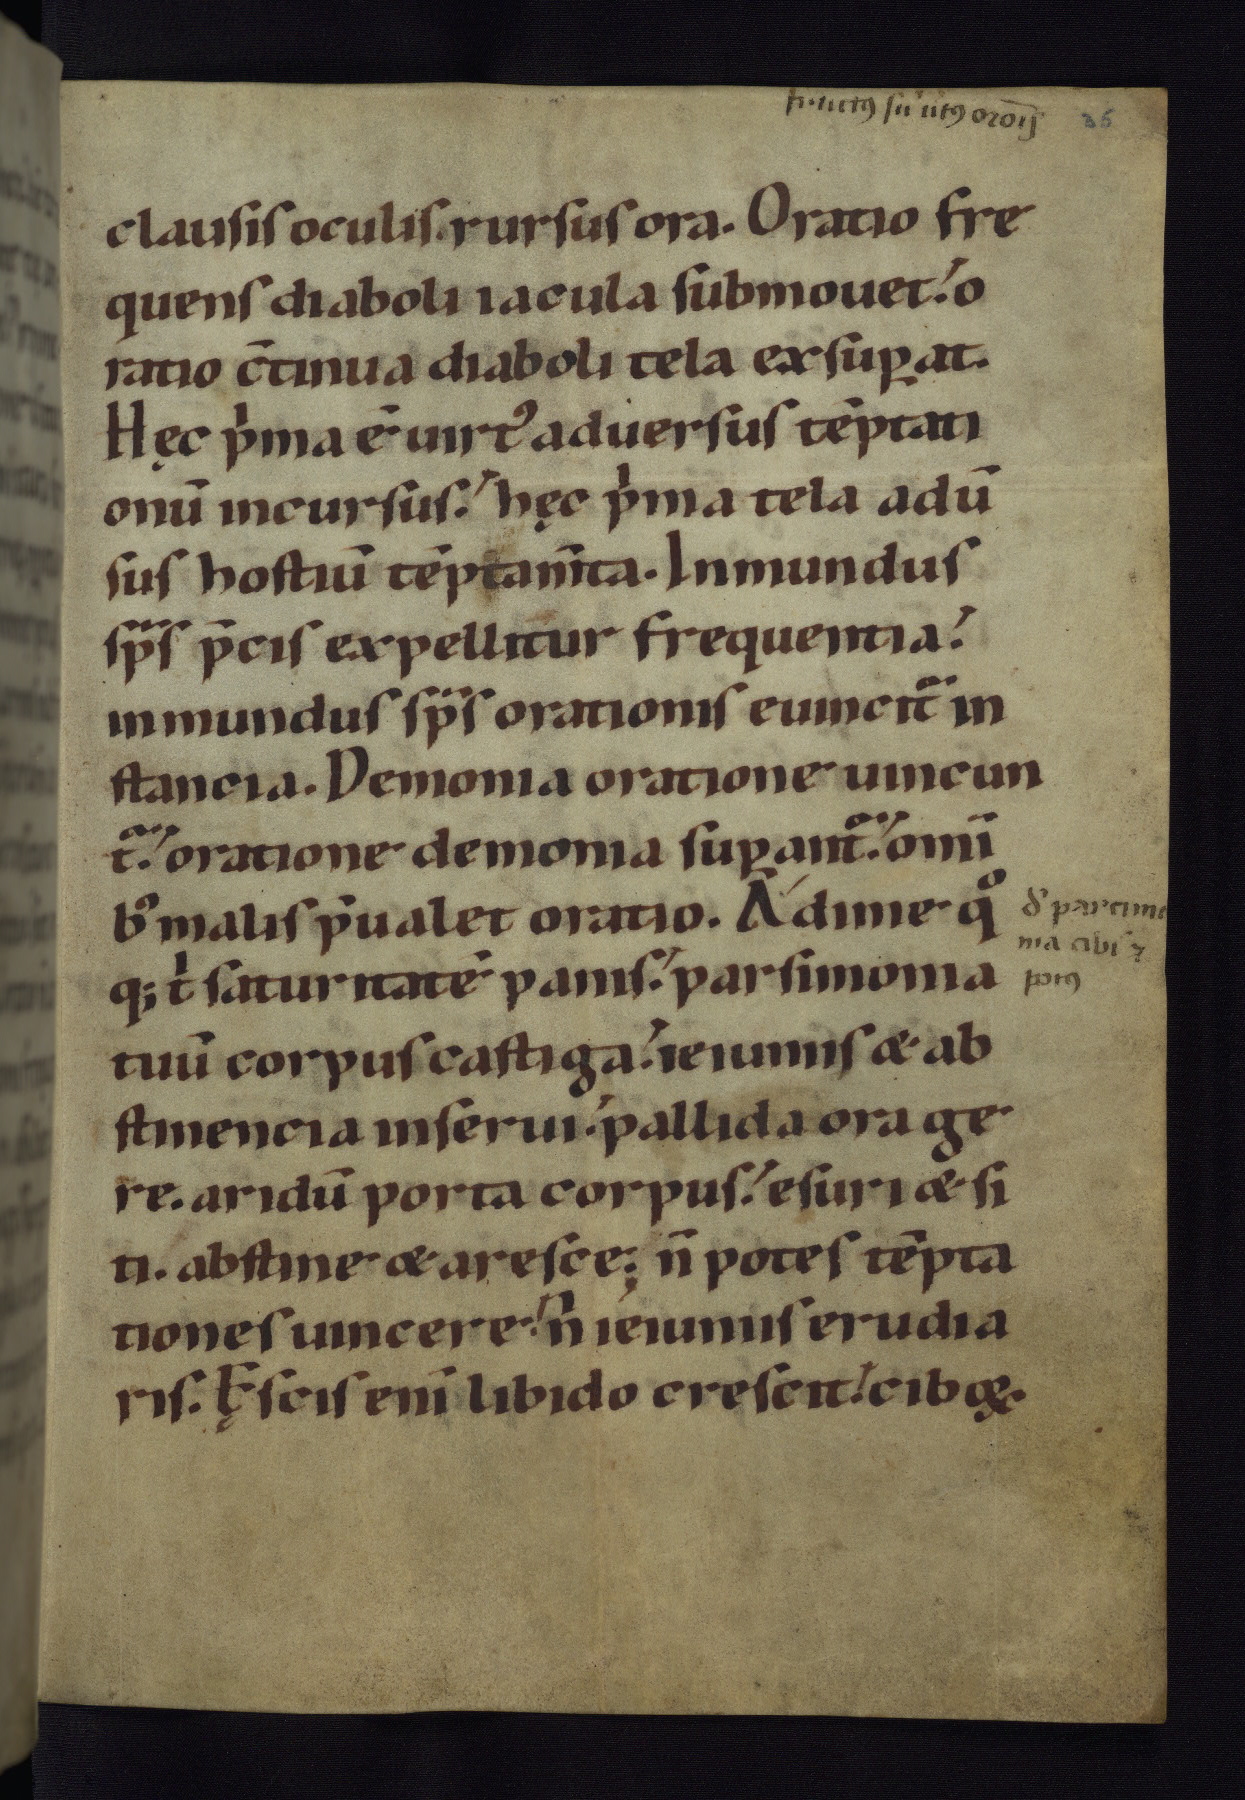 35
clausis oculis. rursus ora. Oratio fre
quens diaboli iacula submouet. o
ratio c̄tinua diaboli tela exsuꝑat.
Hęc pⁱma ē uirtꝰ aduersus tēptati
onū incursus. hęc pⁱma tela adū
sus hostiū tēptam̄ta. Inmundus
sp̄s p̄cis expellitur frequentia.
inmundus sp̄s orationis euincit᷑ in
stancia. Demonia oratione uincun
t᷑. oratione demonia suꝑant᷑. omī
bꝰ malis p̄ualet oratio. Adime qͦ
q; tⁱ saturitatē panis. parsimonia
tuū corpus castiga. ieiuniis & ab
stinencia inserui. pallida ora ge
re. aridū porta corpus. esuri & si
ti. abstine & aresce; n̄ potes tēpta
tiones uincere. n̄ ieiuniis erudia
ris. Ęscis enī libido crescit. ciboꝝ